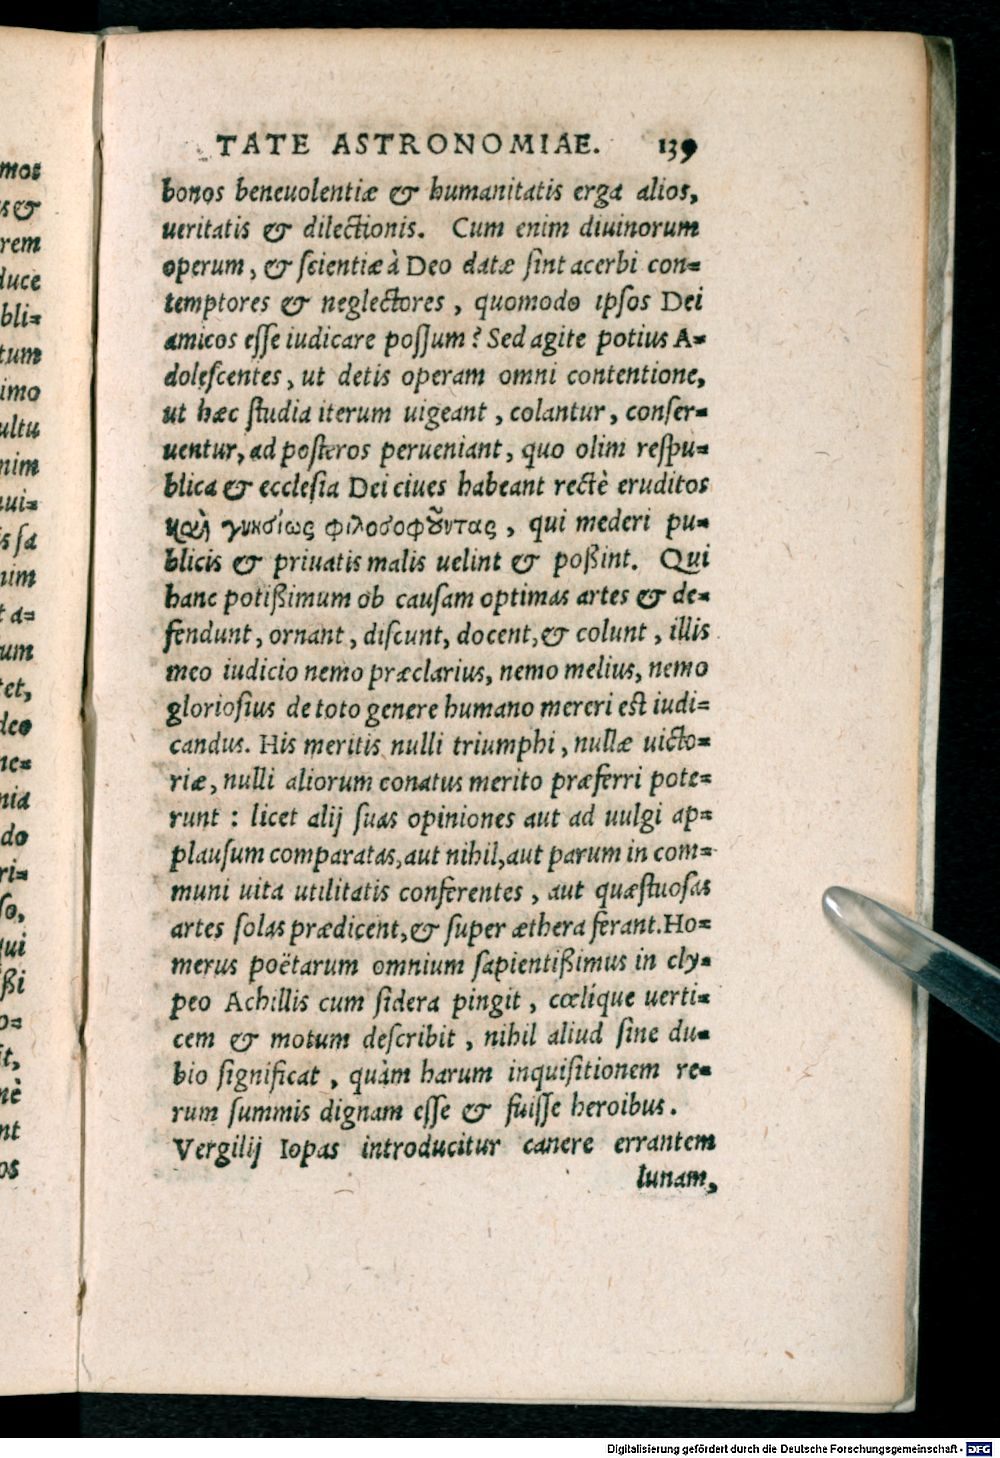 TATE ASTRONOMIAE. 139
bonos beneuolentiæ & humanitatis erga alios,
ueritatis & dilectionis. Cum enim diuinorum
operum, & scientiæ à Deo datæ sint acerbi con=
temptores & neglectores, quomodo ipsos Dei
amicos esse iudicare possum? Sed agite potius A=
dolescentes, ut detis operam omni contentione,
ut hæc studia iterum uigeant, colantur, conser=
uentur, ad posteros perueniant, quo olim respu=
blica & ecclesia Dei ciues habeant rectè eruditos
καὶ γνησίως φιλοσοφοῦντας, qui mederi pu=
blicis & priuatis malis uelint & poßint. Qui
hanc potißimum ob causam optimas artes & de=
fendunt, ornant, discunt, docent, & colunt, illis
meo iudicio nemo præclarius, nemo melius, nemo
gloriosius de toto genere humano mereri est iudi=
candus. His meritis nulli triumphi, nullæ uicto=
riæ, nulli aliorum conatus merito præferri pote=
runt : licet alij suas opiniones aut ad uulgi ap=
plausum comparatas, aut nihil, aut parum in com=
muni uita utilitatis conferentes, aut quæstuosas
artes solas prædicent, & super æthera ferant. Ho=
merus poëtarum omnium sapientißimus in cly=
peo Achillis cum sidera pingit, cœlique uerti=
cem & motum describit, nihil aliud sine du=
bio significat, quàm harum inquisitionem re=
rum summis dignam esse & fuisse heroibus.
Vergilij Iopas introducitur canere errantem
lunam,
mos
s &
rem
duce
bli=
tum
imo
ultu
nim
ui=
is sa
nim
t a=
um
tet,
deo
ne=
nia
do
ri=
so,
qui
ßi
o=
it,
nè
nt
os
Digitalisierung gefördert durch die Deutsche Forschungsgemeinschaft - DFG